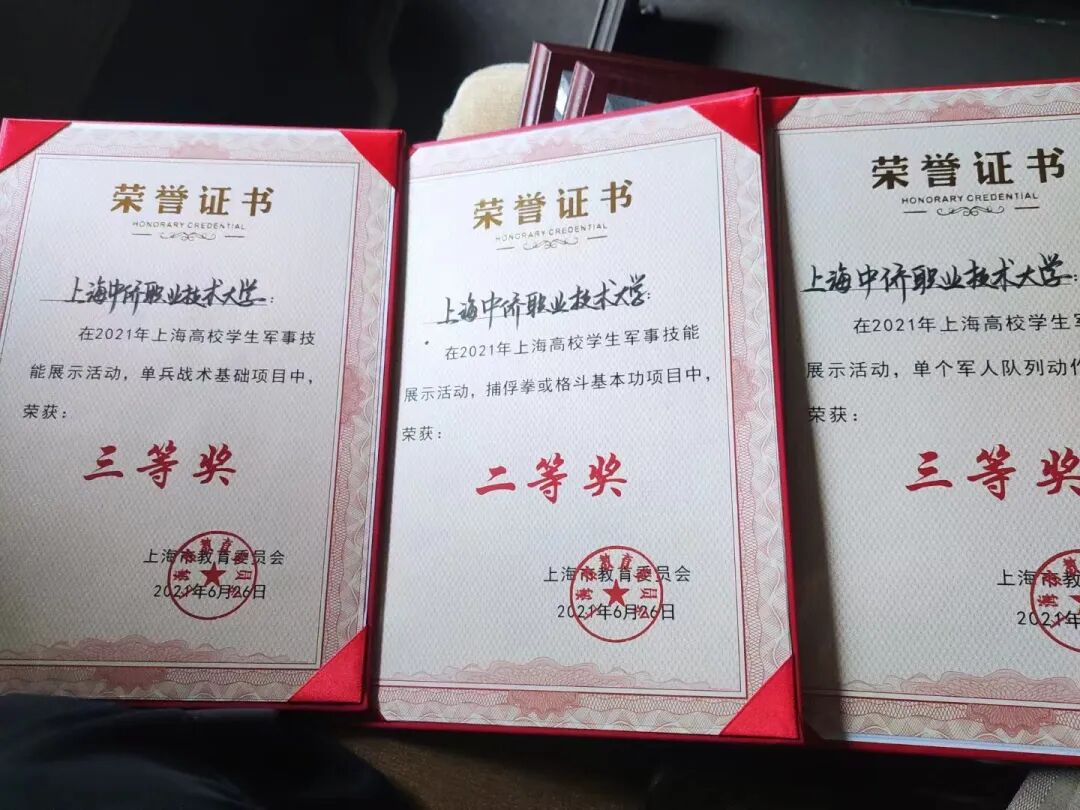 荣誉证书
HONORARY CREDENTIAL
上海中侨职业技术大学：
在2021年上海高校学生军事技
能展示活动，单兵战术基础项目中，
荣获：
三等奖
上海市教育委员会
2021年6月26日
荣誉证书
HONORARY CREDENTIAL
上海中侨职业技术大学：
在2021年上海高校学生军事技能
展示活动，捕俘拳或格斗基本功项目中，
荣获：
二等奖
上海市教育委员会
2021年6月26日
荣誉证书
HONORARY CREDENTIAL
上海中侨职业技术大学：
在2021年上海高校学生军
展示活动，单个军人队列动作
荣获：
三等奖
上海市教
2021年